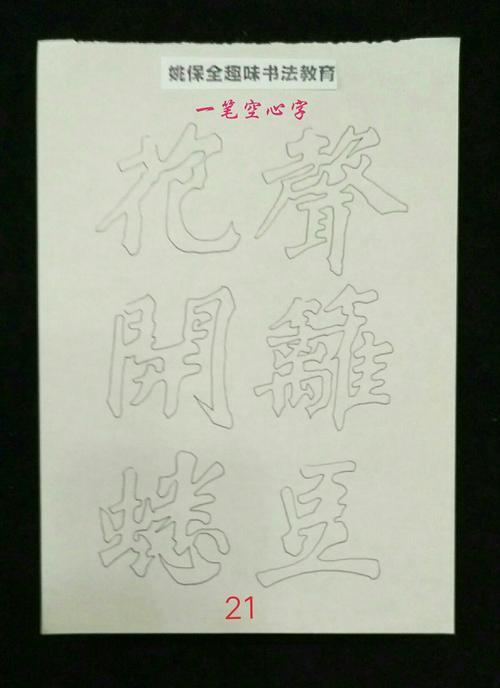 姚保全趣味书法教育
一笔空心字
聲籬豆
花開蟋
21